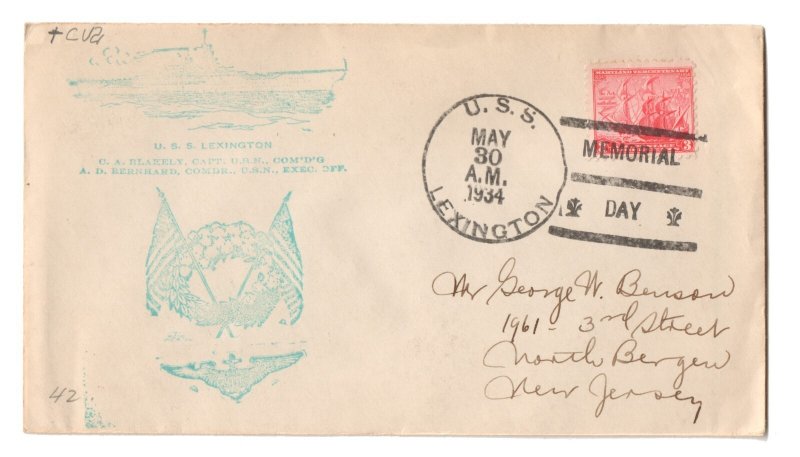 +CV2
U.S.S. LEXINGTON
C. A. BLAKELY, CAPT. U.S.N., COM'D'G
A. D. BERNHARD, COMDR., U.S.N., EXEC. OFF.
U.S.S.
MAY
30
A.M.
1934
LEXINGTON
MEMORIAL
DAY
3
Mr George W. Benson
1961 - 3rd Street
North Bergen
New Jersey
42